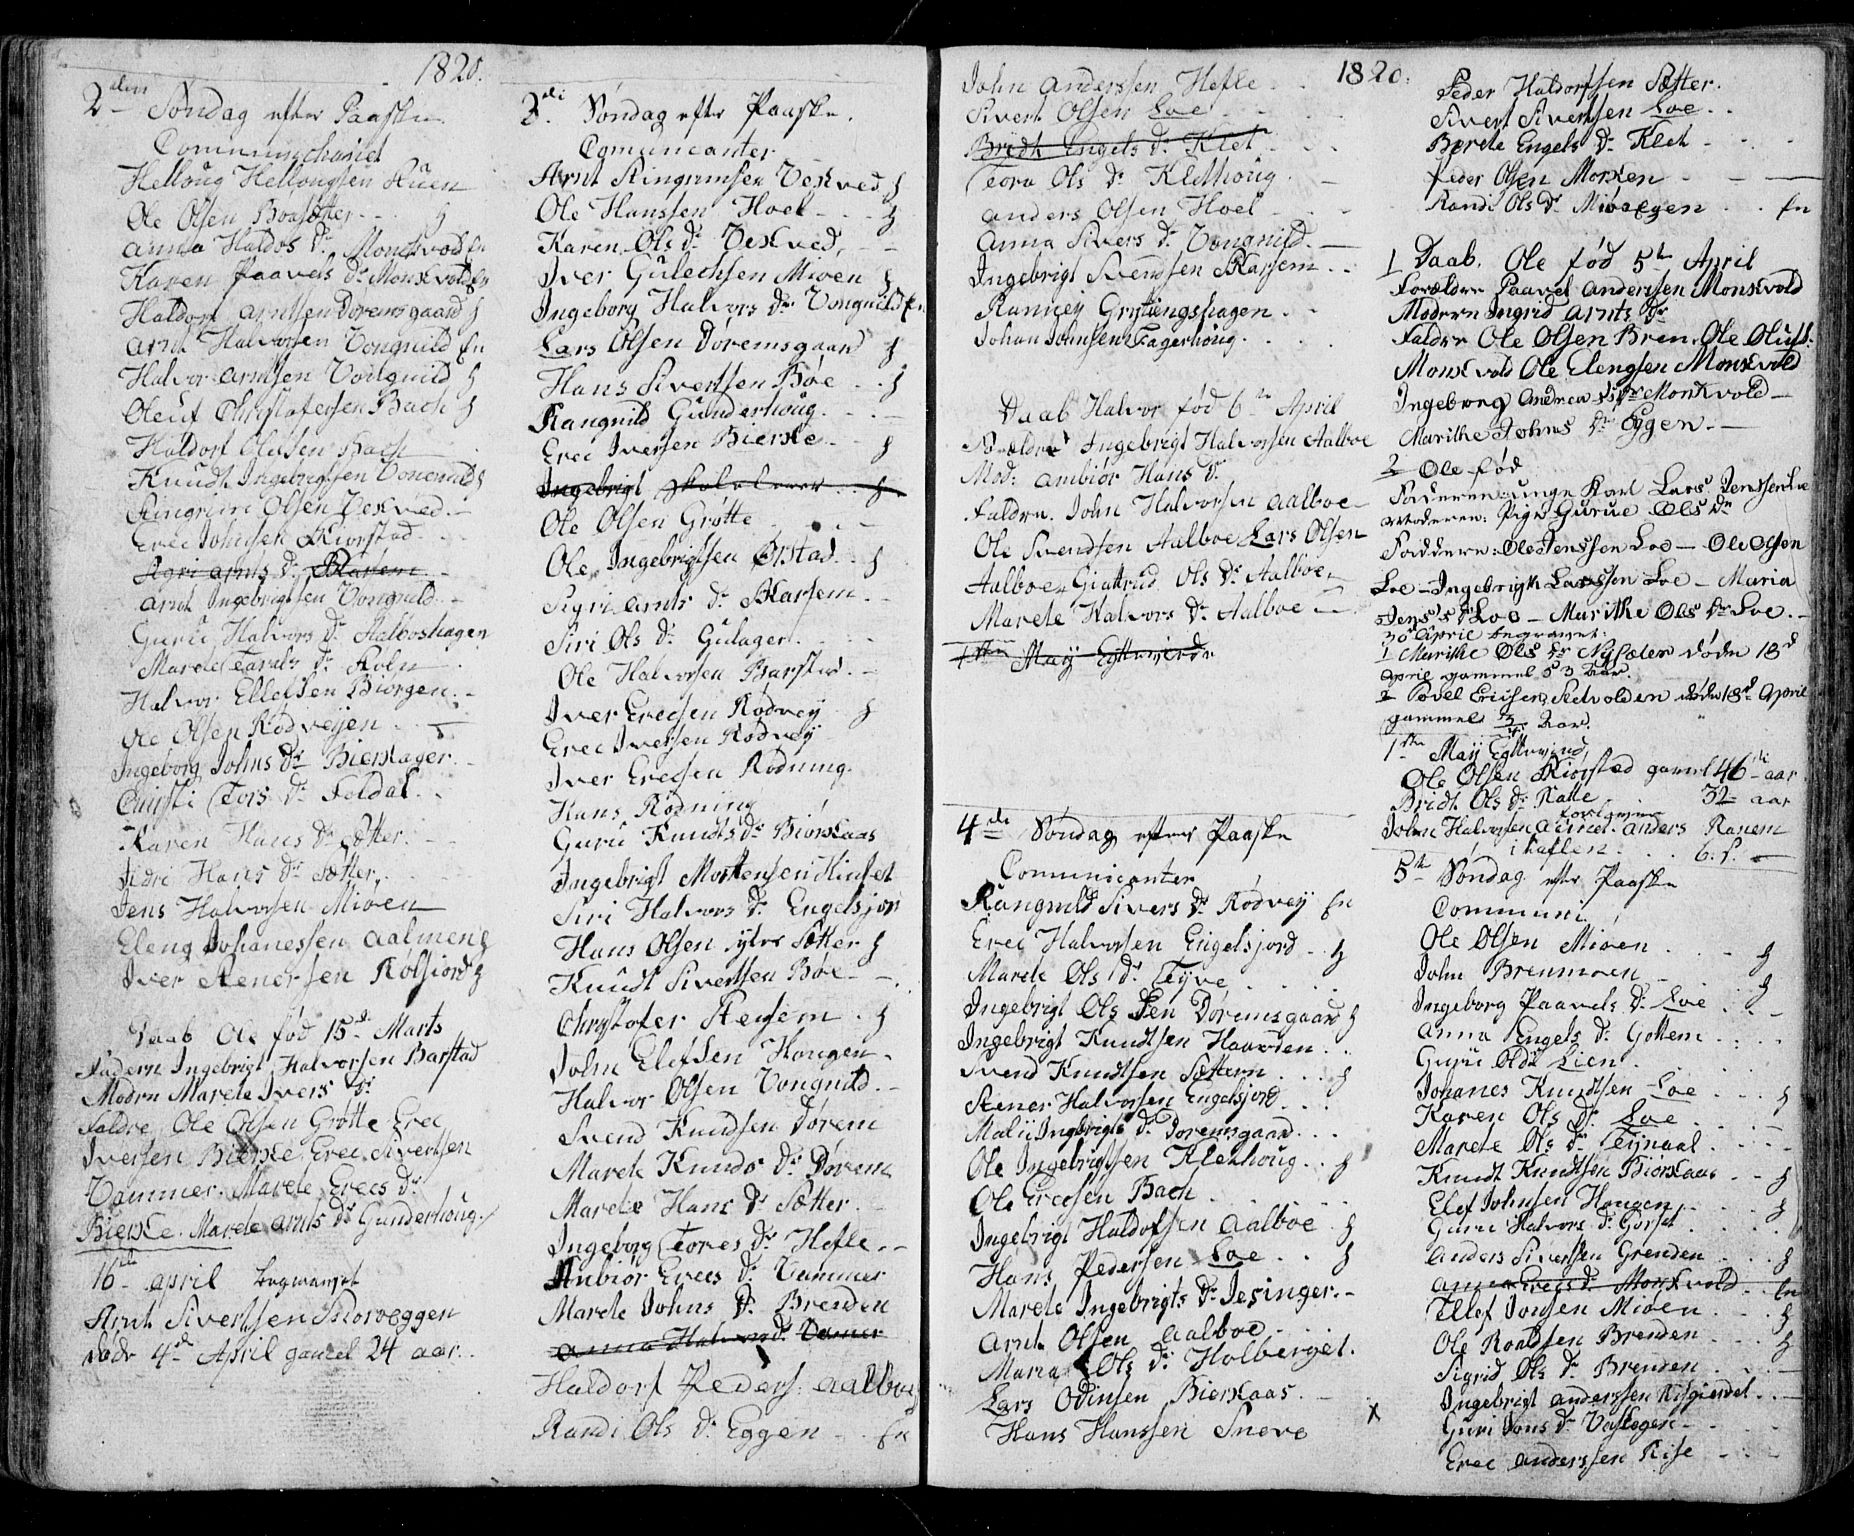 1820.
2den Søndag efter Paaske
Communicheret
Helloug Hellougsen Huen
Ole Olsen Boasætter - - - h
Anna Haldos Dr Monkvold En
Karen Paavels Dr Monkvold En
Haldorf Arntsen Doremsgaard h
Arnt Halvorsen Vongnild En
Halvor Arntsen Vongnild h
Oleuf Christofersen Bach h
Haldorf Olufsen Bach
Knudt Ingebrigtsen Vongnild h
Ringrim Olsen Vexved -
Erec Johnsen Skiorstad
Sigri Arnts Dr Skarsem
Arnt Ingebrigtsen Vongnild -
Guru Halvors Dr Aalboshagen
Marete Tarals Dr
Halvor Ellefsen Biørgen -
Ole Olsen Rødveyen - -
Ingeborg Johns Dr Bierkager -
Chirsti Tors Dr Foldal -
Karen Hans Dr Sætter -
Hans Dr Sætter
Jens Halvorsen Mioen
Eleng Johanessen Aalmen h
Iver Stenersen Rølsiord h
Daab Ole fød 15d Marts
Fadern Ingebrigt Halvorsen Barstad
Modrn Marete Ivers Dr
Faldre Ole Olsen Grøtte Erec
Iversen Bierke Erec Sivertsen
Vammer. Marete Erecs Dr
Bierke. Marete Arnts Dr Gunderhoug
16de April begravet
Arnt Sivertsen Skoroeggen
døde 4de April gamel 24 aar.
3di Søndag efter Paaske.
Comunicanter
Arnt Ringrimsen Vexved h
Ole Hanssen Hoel - - - h
Karen Ols Dr Vexved -
Iver Gulechsen Mioen h
Ingeborg Halvors Dr Vongnild En
Lars Olsen Doremsgaard h
Hans Sivertsen Bøe - - h
Rangnild Gunderhoug - -
Erec Iversen Bierke - h
Ingebrigt Skolelærer - - h
Ole Olsen Grøtte - -
Ole Ingebrigtsen Ørstad - h
Sigri Arnts Dr Skarsem -
Siri Ols Dr Gulager -
Ole Halvorsen Barstad -
Iver Erecsen Rødvey - h
Erec Iversen Rødvey
Iver Erecsen Rødning
Hans Rødning
Guru Knudts Dr Biørkaas
Ingebrigt Mortensen Hinset
Siri Halvors Dr Engelsjor
Hans Olsen ytre Sætter h
Knudt Sivertsen Bøe -
Christofer Stensem - h
John Elefsen Hougen -
Halvor Olsen Vongnild -
Svend Knudsen Dørem
Marete Knuds Dr Dørem
Marete Hans Dr Sætter -
Ingeborg Tores Dr Hefle -
Anbiør Erecs Dr Vammer
Marete Johns Dr Brenden
Anna Halvors Dr Vamer
Haldorf Peders: Aalboe
Randi Ols Dr Eggen - - En
John Anderssen Hefle - -
Sivert Olsen Loe - -
Bridt Engels Dr Klet - -
Tora Ols Dr Kletthoug -
Anders Olsen Hoel - -
Anna Sivers Dr Vongnild -
Ingebrigt Svendsen Skarsem - -
Ramvey Grytingshagen -
Johan Johnsen Fagerhoug -
Daab Halvor fød 6te April
Forældre Ingebrigt Halvorsen Aalboe
Mod: Ambiør Hans Dr
Faldre. John Halvorsen Aalboe
Ole Svendsen Aalboe Lars Olsen
Aalboe Giertrud Ols Dr Aalboe
Marete Halvors Dr Aalboe -
1ste May Egtteviede
4de Søndag efter Paaske
Comunicanter
Rangnild Sivers Dr Rødvey En
Erec Halvorsen Engelsjord - h
Marete Ols Dr Tyve
Ingebrigt Ols Sen Doremsgaard h
Ingebrigt Knudtsen Haarden - -
Svend Knudtsen Sættern - - h
Stener Halvorsen Engelsjord - -
Malii Ingebrigts Dr Doremsgaard - -
Ole Ingebrigtsen Kletthoug - - h
Ole Erecsen Bach - -
Ingebrigt Haldorsen Aalboe - h
Hans Pedersen Loe - - h
Marete Ingebrigts Dr Jesinger - -
Arnt Olsen Aalboe
Maria Ols Dr Holberget.
Lars Odinsen Bierkaas -
Hans Hanssen Sneve
1820.
Peder Haldorfsen Sætter.
Sivert Sivertsen Loe - -
Berete Engels Dr Klet - -
Peder Olsen Morken - -
Randi Ols Dr Mioeggen - - En
1 Daab. Ole fød 5te April
Forældre Paavel Anderssen Monkvold
Modern Ingrid Arnts Dr
Faldre Ole Olsen Bren. Ole Olufs:
Monkvold Ole Elengsen Monkvold
Ingeborg Andrea Dr Monkvold -
Marithe Johns Dr Eggen -
2 Ole fød
Faderen unge Karl Lars Jenssen Loe
Moderen: Pige Gurue Ols Dr
Faddere: Ole Jenssen Loe - Ole Olsen
Loe - Ingebrigt Larssen Loe - Maria
Jens's Dr Loe - Marithe Ols Dr Loe -
30 April begravet:
1 Marithe Ols Dr Nysæter døde 18d
April gammel 53 Aar.
2 Povel Ericsen Sletvolden døde 18d April
gammel 3/4 Aar.
1ste May Egtteviede
Ole Olsen Skiorstad gamel 46 aar
Bridt Ols Dr Ratte 32 aar
John Halvorsen Almer. Anders Ranem
6. f.
5te Søndag efter Paaske
Communi.
Ole Olsen Mioen - - h
John Brenmoen - h
Ingeborg Paavels Dr Loe - -
Anna Engels Dr Gottem - -
Guru Olds Lien -
Johanes Knudtsen Loe - - h
Karen Ols Dr Loe - -
Marete Ols Dr Teynaal - -
Knudt Knudtsen Biørkaas - - h
Elef Johnsen Hougen - - h
Guru Halvors Dr Gorset - -
Anders Sivertsen Grenden - - h
Anna Erecs Dr Monkvold - En
Ellef Jonsen Mioen - - h
Ole Roaldsen Brenden - - h
Sigrid Ols Dr Brenden - -
Ingebrigt Anderssen Risgierdet - -
Guri Jons Dr Vastegen - -
Erec Anderssen Rise - -